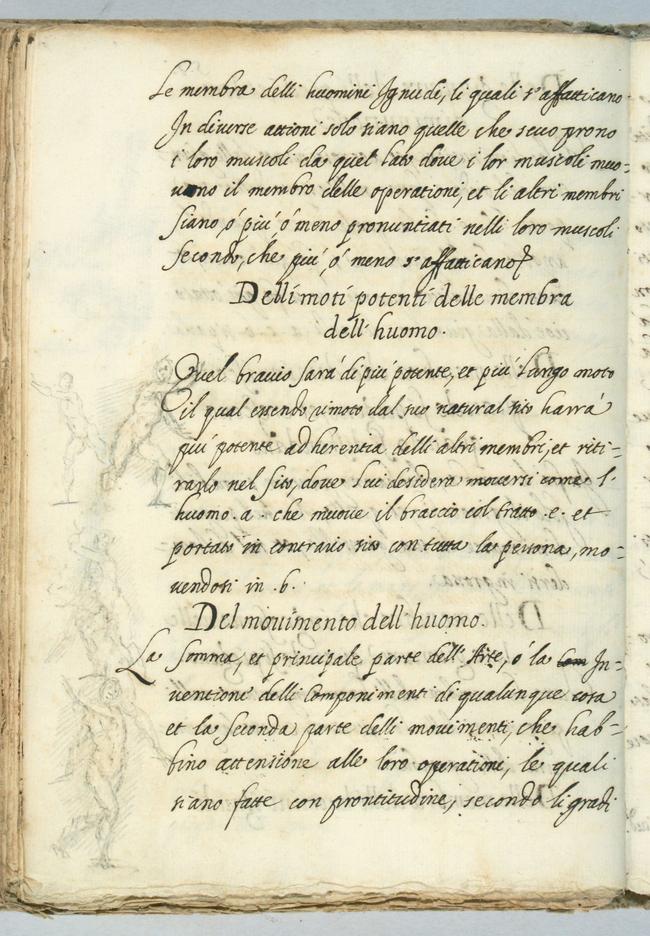 Le membra delli huomini Ignudi, li quali s'affatticano
In diverse attioni solo siano quelle che scuoprono
i loro muscoli da quel lato dove i lor muscoli muo-
vono il membro delle operationi, et li altri membri
siano, ó piú, ó meno pronuntiati nelli loro muscoli
secondo, che piú, ó meno s'affatticano
Delli moti potenti delle membra
dell'huomo.
Quel bracio sará di piú potente, et piú lungo moto
il qual essendo rimoto dal suo natural sito harrá
piú potente adherentia delli altri membri, et riti-
rarlo nel sito, dove lui desidera moversi come l'
huomo .a. che muove il braccio col tratto .e. et
portato in contrario sito con tutta la persona, mo-
vendosi in .b.
Del movimento dell'huomo.
La Somma, et principale parte dell'Arte, ó la In-
ventione delli Componimenti di qualunque cosa
et la seconda parte delli movimenti, che hab-
bino attensione alle loro operationi, le quali
siano fatte con prontitudine, secondo li gradi